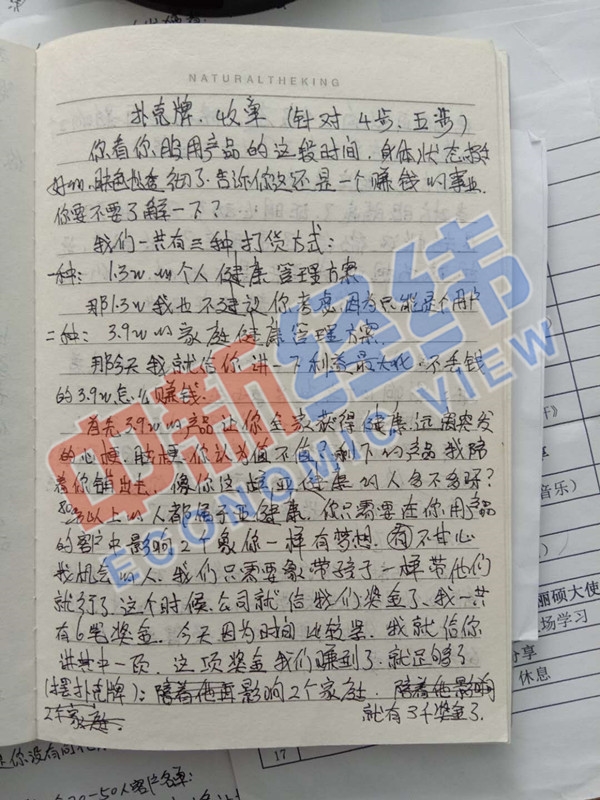 NATURALTHEKING
扑克牌、收单（针对4步、五步）
你看你服用产品的这段时间，身体状态
好，肤色也细了。告诉你这还是一个赚钱的事业
你要不要了解一下？
我们一共有三种打货方式：
一种：1.3w的个人健康管理方案
那1.3w我也不建议你考虑，因为只能是个用户
二种：3.9w的家庭健康管理方案.
那今天我就给你讲一下利益最大化、不丢钱
的3.9w怎么赚钱.
首先3.9w的产品让你全家获得健康，远离突发
的心梗、脑梗，你认为值不值？剩下的产品我陪
着你铺出去，像你这样亚健康的人多不多呀？
以上的人都属于亚健康，你只需要在你用产品
的客户中影响2个象你一样有梦想、有不甘心
找机会的人、我们只需要象带孩子一样带他们
就行了，这个时候公司就给我们奖金了、我一共
有6笔奖金. 今天因为时间比较紧，我就给你
讲其中一项，这项奖金我们赚到了就足够了
（摆扑克牌）：陪着他再影响2个家庭. 陪着他影响
2个家庭. 就有3千奖金了.
中新经纬
ECONOMIC VIEW
音乐）
丽硕大使
场学习
分享
休息
17